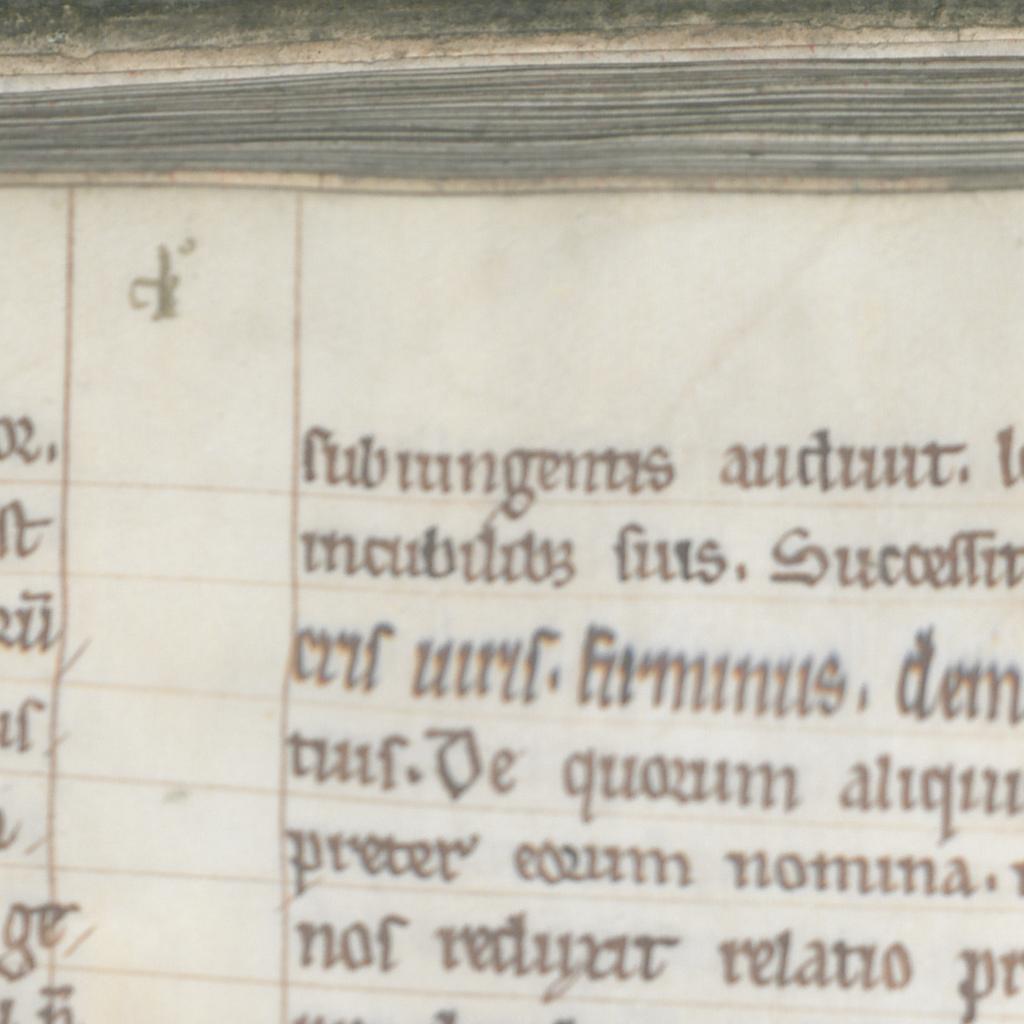 or.
st
rū
us
ge
subiungentis audiuit. l
incubilibꝫ suis. Successit
cris uiris. firminus. dem
tuis. De quorum aliqui
preter eorum nomina.
nos reduxit relatio pr